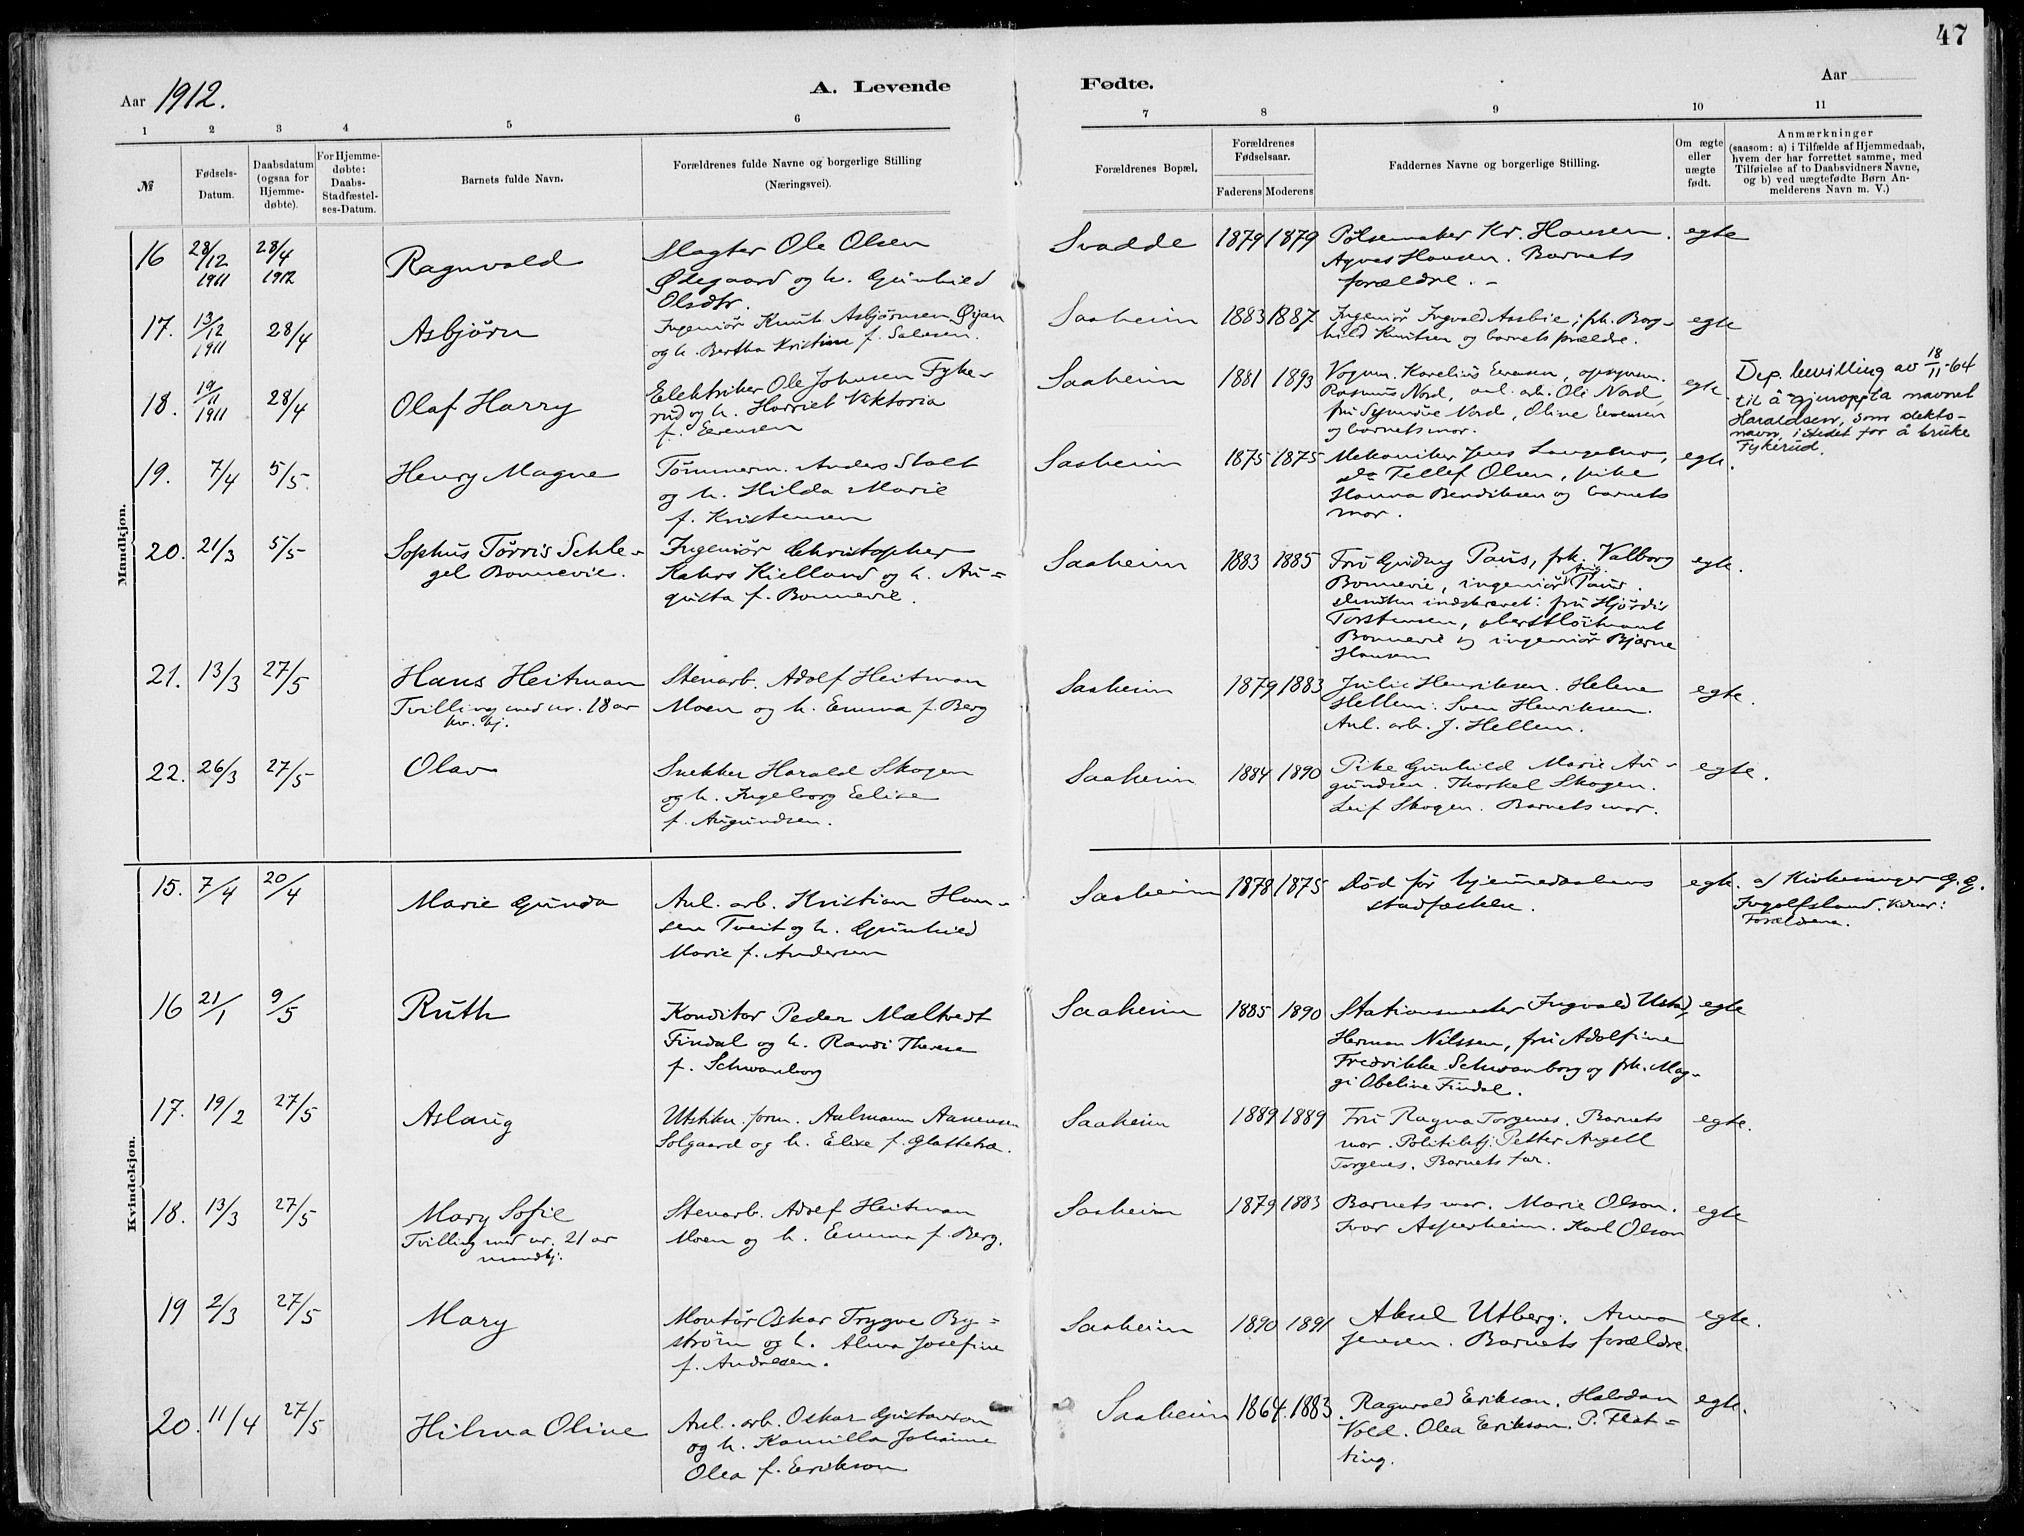 47
Aar 1912.
A. Levende
Fødte.
Aar
1 2 3 4 5 6 7 8 9 10 11
№
Fødsels-
Datum.
Daabsdatum
(ogsaa for
Hjemme-
døbte).
For Hjemme-
døbte:
Daabs-
Stadfæstel-
ses-Datum.
Barnets fulde Navn.
Forældrenes fulde Navne og borgerlige Stilling
(Næringsvei).
Forældrenes Bopæl.
Forældrenes
Fødselsaar.
Faderens Moderens
Faddernes Navne og borgerlige Stilling.
Om ægte
eller
uægte
født.
Anmærkninger
(saasom: a) i Tilfælde af Hjemmedaab,
hvem der har forrettet samme, med
Tilføielse af to Daabsvidners Navne,
og b) ved uægtefødte Børn An-
melderens Navn m. V.)
Mandkjøn.
16
28/12
1911
28/4
1912
Ragnvald
Slagter Ole Olsen
Ødegaard og h. Gunhild
Olsdtr.
Svadde
1879 1879
Pølsemaker Kr. Hansen.
Agnes Hansen. Barnets
forældre. -
egte
17.
13/12
1911
28/4
Asbjørn
Ingeniør Knut Asbjørnsen Øyan
og h. Bertha Kristine f. Salesen.
Saaheim
1883 1887
Ingeniør Ingvald Aasbie; frk. Borg-
hild Knutsen og barnets forældre.
egte
18.
19/11
1911
28/4
Olaf Harry
Elektriker Ole Johnsen Fyke-
rud og h. Harriet Viktoria
f. Evensen
Saaheim
1881 1893
Vognm. Karelius Evensen, opsynsm.
Rasmus Nord, anl. arb. Ole Nord,
fru Nord, Oline Evensen
og barnets mor.
egte
Dep. bevilling av 18/11-64
til å gjenoppta navnet
Haraldsen, som slekts-
navn, istedet for å bruke
Fykerud.
19.
7/4
5/5
Henry Magne
Tømmerm. Anders Stolt
og h. Hilda Marie
f. Kristensen
Saaheim
1875 1875
Mekaniker Jens
do Tellef Olsen, pike
Hanna Bendiksen og barnets
mor.
egte.
20.
21/3
5/5
Sophus Tørris Schle-
gel Bonnevie.
Ingeniør Christopher
Kahrs Kielland og h. Au=
gusta f. Bonnevie.
Saaheim
1883 1885
Fru Gudny Paus, frk. Valborg
Bonnevie, ingeniør Aug. Paus.
indskrevet: fru Hjørdis
Torstensen, oberstløitnant
Bonnevie og ingeniør Bjarne
Hansen
egte.
21.
13/3
27/5
Hans Heitman
Tvilling med nr. 18 av
kv. kj.
Stenarb. Adolf Heitman
Moen og h. Emma f. Berg
Saaheim
1879 1883
Julie Henriksen. Helene
Hellem. Sven Henriksen.
Anl. arb. J. Hellem.
egte.
22.
26/3
27/5
Olav
Snekker Harald Skogen
og h. Ingeborg Elise
f. Augundsen.
Saaheim
1884 1890
Pike Gunhild Marie Au-
gundsen. Thorkel Skogen.
Leif Skogen. Barnets mor.
egte.
Kvindekjøn.
15.
7/4
20/4
Marie Gunda
Anl. arb. Kristian Han-
sen Tveit og h. Gunhild
Marie f. Andersen
Saaheim
1878 1875
Død før hjemmedaabens
stadfæstelse.
egte.
af Kirkesanger G. G.
Ingolfsland. Vidner:
Forældrene.
16
21/1
9/5
Ruth
Konditor Peder Mæltvedt
Findal og h. Randi Therese
f. Schwanborg
Saaheim
1885 1890
Stationsmester Ingvald Ustad,
Herman Nilssen, fru Adolfine
Fredrikke Schwanborg og frk. Mag-
gi Obeline Findal.
egte
17.
19/2
27/5
Aslaug
Utstikn. form. Aalmann Aanensen
Solgaard og h. Elise f. Glattetræ.
Saaheim
1889 1889
Fru Ragna Torgenes. Barnets
mor. Politibetj. Petter Angell
Torgenes. Barnets far.
egte.
18.
13/3
27/5
Mary Sofie
Tvilling med nr. 21 av
mandkj.
Stenarb. Adolf Heitman
Moen og h. Emma f. Berg.
Saaheim
1879 1883
Barnets mor. Marie Olson.
Ivar Asperheim. Karl Olson
egte
19
2/3
27/5
Mary
Montør Oskar Trygve By=
strøm og h. Alma Josefine
f. Andresen.
Saaheim
1890 1891
Aksel Utberg. Anna
Jensen. Barnets forældre.
egte.
20.
11/4
27/5
Hilma Oline
Anl. arb. Oskar Gustavson
og h. Kamilla Johanne
Olea f. Erikson
Saaheim
1864. 1883.
Ragnvald Erikson. Halvdan
Vold. Olea Erikson. P. Flat=
ting.
egte.